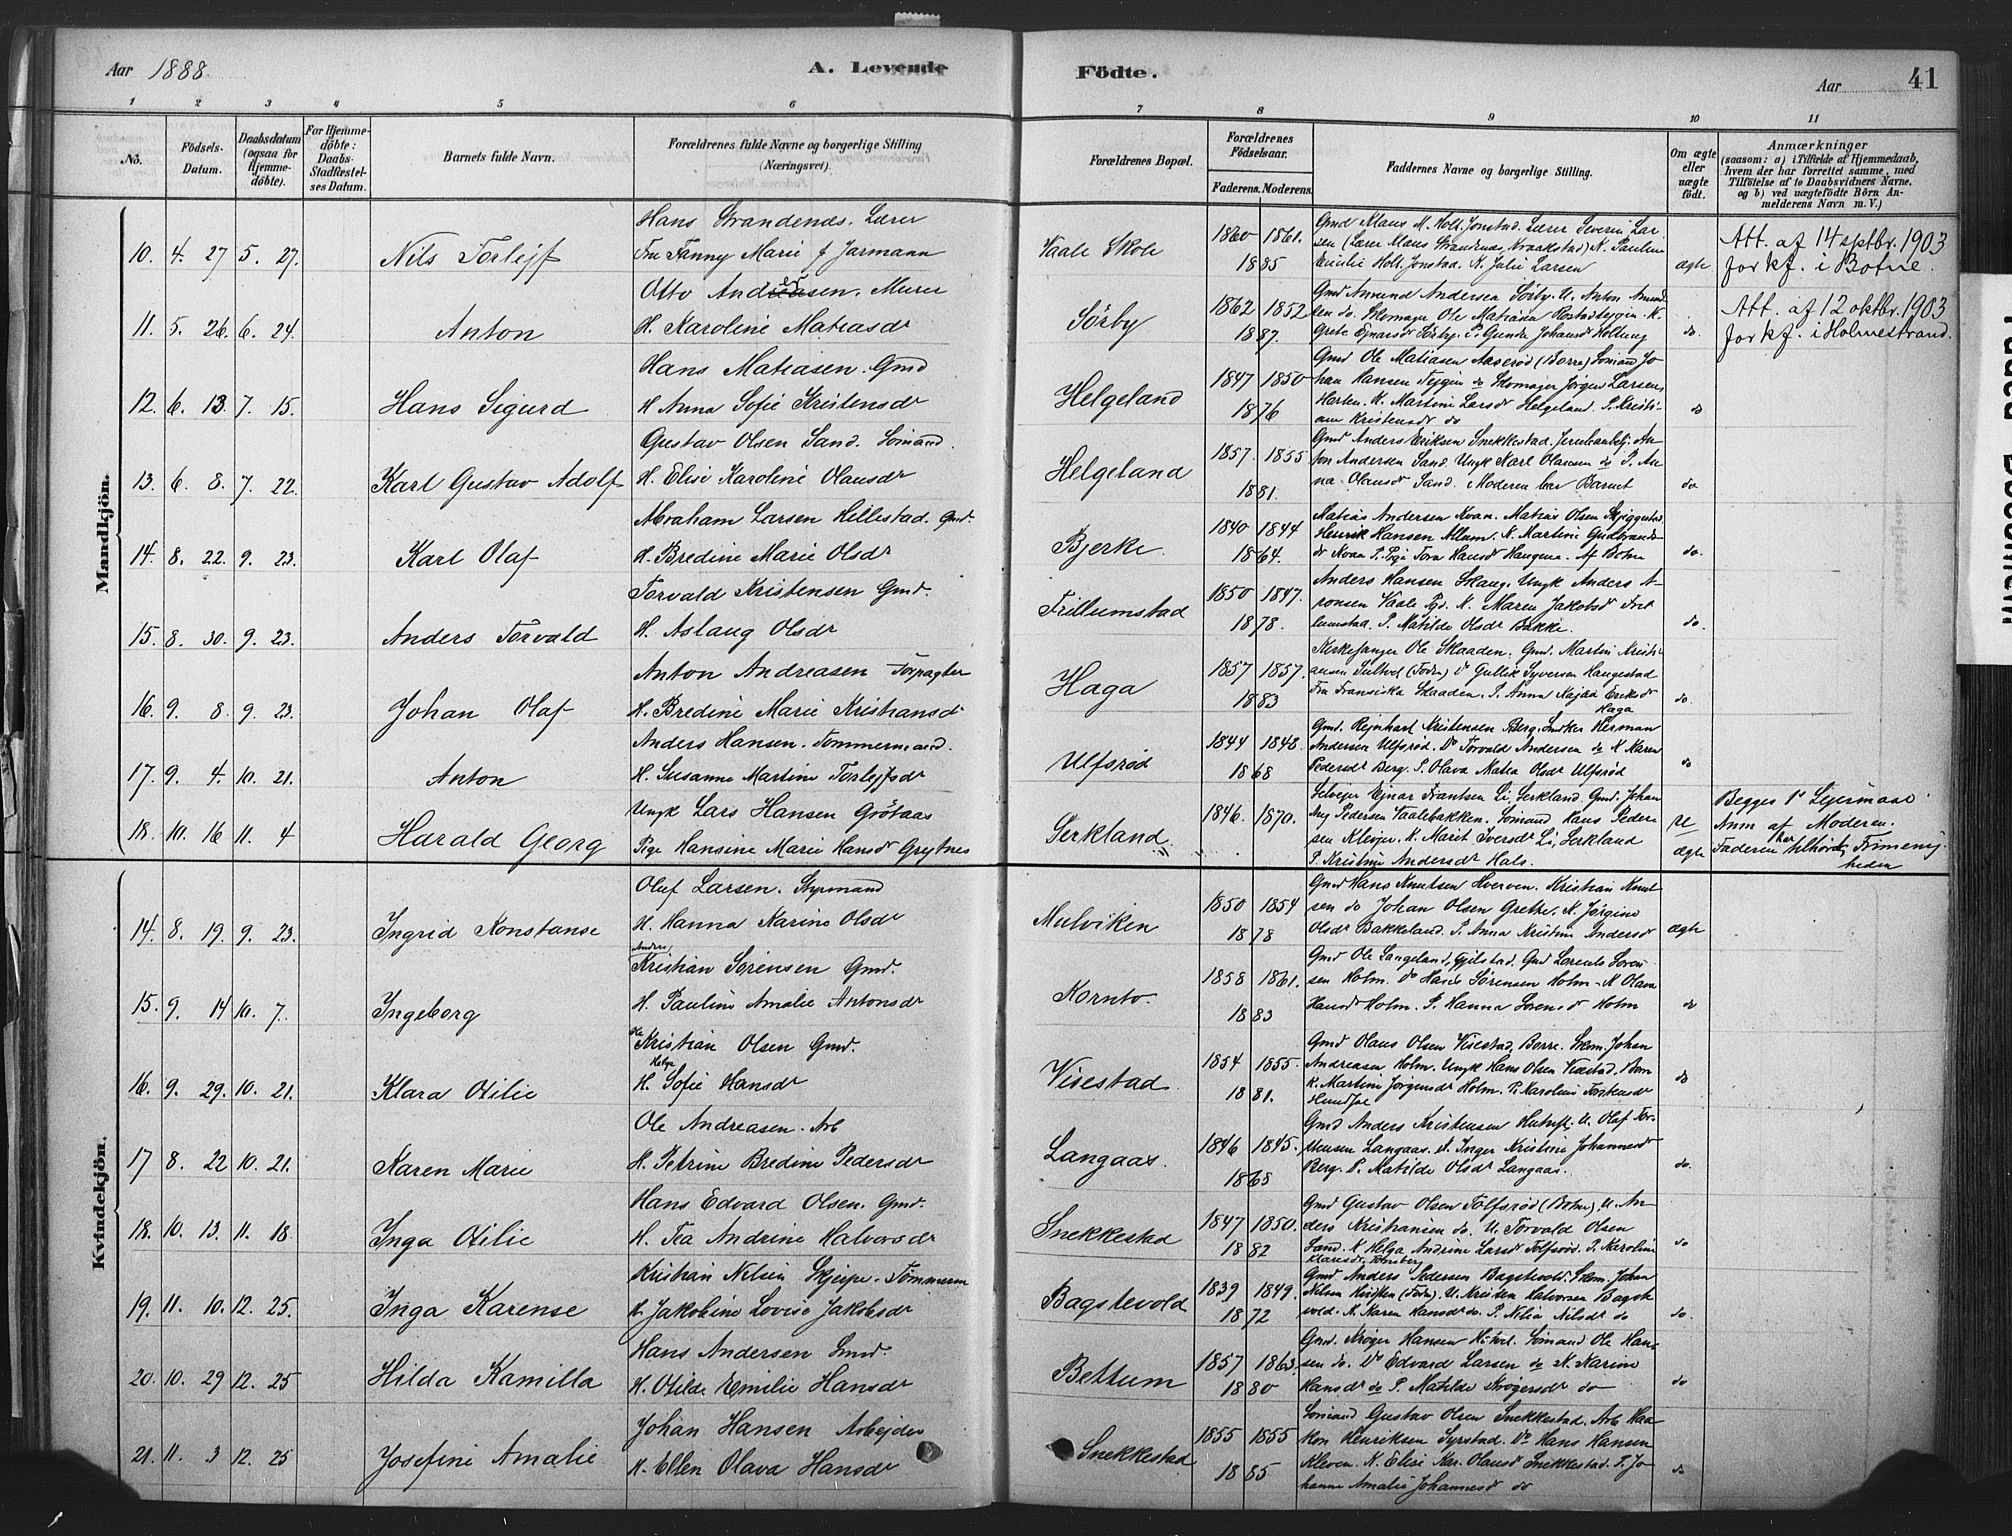 Aar 1888.
A. Levende Födte.
Aar 41
1 2 3 4 5 6 7 8 9 10 11
No.
Födsels-Datum.
Daabsdatum (ogsaa for Hjemme-döbte).
For Hjemme-döbte: Daabs-Stadfæstel-ses Datum.
Barnets fulde Navn.
Forældrenes fulde Navne og borgerlige Stilling (Næringsvei).
Forældrenes Bopæl.
Forældrenes Födselsaar.
Faderens. Moderens.
Faddernes Navne og borgerlige Stilling.
Om ægte eller uægte födt.
Anmærkninger
(saasom: a) i Tilfælde af Hjemmedaab, hvem der har forrettet samme, med Tilföielse af to Daabsvidners Navne, og b) ved uægtefödte Börn An-melderens Navn m. V.)
Mandkjön.
10. 4. 27 5. 27. Nils Torlejf
Hans Strandenæs. Lærer
Fru Fanny Marie f Jarmann
Vaale Skole
1860 1861.
1885
Gmd Klaus M. Holt. Jonstad. Lærer Severin Lar-
sen (Lærer Klaus Strandenæs, Kraakstad) K. Pauline
Emilie Holt. Jonstad. K. Julie Larsen
ægte
Att. af 14 septbr. 1903
for kf. i Botne.
11. 5. 26. 6. 24. Anton
Otto Andersen. Murer
H. Karoline Matiasdr
Sörby
1862 1852
1887.
Gmd Amund Andersen Sörby. U. Anton Amund-
sen do. Skomager Ole Matiasen
do.
Att. af 12 oktbr. 1903
for kf. i Holmestrand.
12. 6. 13. 7. 15. Hans Sigurd
Hans Matiasen. Gmd
H Anna Sofie Kristensdr
Helgeland
1847 1850
1876
Gmd Ole Matiasen Aaserød (Borre) Sömand Jo-
han Hansen Tejgen do Skomager Jörgen Larsen,
Horten. K. Martine Larsdr Helgeland. P. Kristi-
ane Kristensdr do
do
13. 6. 8. 7. 22. Karl Gustav Adolf
Gustav Olsen Sand. Sömand.
H. Elise Karoline Olausdr
Helgeland
1857. 1855
1881.
Gmd Anders Eriksen Snekkestad. Jernbanebetj. An-
ton Andersen Sand. Ungk Karl Olausen do P. An-
na Olausdr Sand. Moderen bar Barnet
do
14. 8. 22. 9. 23. Karl Olaf
Abraham Larsen Hellestad. Gmd.
H. Bredine Marie Olsdr
Bjerke.
1840 1844
1864.
Matias Andersen Kvan. Matias Olsen Skjeggestad
Henrik Hansen Allum. K. Martine Gudbrands-
dr Kvan P. Pige Tora Hansdr Haugene. Af Botne
do.
15. 8. 30. 9. 23. Anders Torvald
Torvald Kristensen Gmd.
H. Aslaug Olsdr
Frillumstad
1850 1847.
1878.
Anders Hansen Skaug. Ungk Anders A-
ronsen Vaale Pgd. K. Maren Jakobsdr Fril-
lumstad. P. Matilde Olsdr Bakke.
do.
16. 9. 8. 9. 23. Johan Olaf
Anton Andreasen Forpagter
H. Bredine Marie Kristiansdr
Haga
1857 1857.
1883
Kirkesanger Ole Skaaden. Gmd. Martin Kristi-
ansen do Gullik Syversen Haugestad
Fru Fransiska Skaaden. P. Anna Kajsa Eriksdr
Haga
do.
17. 9. 4. 10. 21. Anton
Anders Hansen. Tommermand.
H. Susanne Martine Torlejfsdr
Ulfsrød
1844 1848.
1868
Gmd. Rejnhart Kristensen Berg. Snekker Herman
Andersen Ulfsrød. Do Torvald Andersen do K Karen
Pedersdr Berg. P. Olava Matea Olsdr Ulfsrød
do
18. 10. 16 11. 4 Harald Georg
Ungk Lars Hansen Grötaas
Pige Hansine Marie Hansdr Grejtnes
Serkland.
1846. 1870.
Selvejer Ejnar Frantsen Li, Serkland. Gmd. Johan
Ang Pedersen Vaalebakken. Sömand Hans Peder-
sen Klevjer. K. Marit Iversdr Li, Serkland
P. Kristine Andersdr Hals.
uægte
Begges 1s Lejermaal
Anm af Moderen.
Faderen tilhörer Frimenig-
heden
Kvindekjön.
14. 8. 19. 9. 23. Ingrid Konstanse
Oluf Larsen. Styrmand
H. Hanna Karine Olsdr
Mulviken
1850 1854
1878
Gmd Hans Knutsen Hverven. Kristian Knut-
sen do Johan Olsen Grette. K. Jörgine
Olsdr Bakkeland. P. Anna Kristine Andersdr
ægte
15. 9. 14 10. 7. Ingeborg
Anders
Kristian Sörensen Gmd.
H. Pauline Amalie Antonsdr
Kornto.
1858 1861.
1883
Gmd Ole Langeland, Gjilstad. Gmd Lorents Sören-
sen Holm. do Hans Sörensen Holm. K Olava
Hansdr Holm. P. Hanna Sörensdr Holm
do
16. 9. 29. 10. 21. Klara Otilie
Ole
Kristian Olsen Gmd.
Helga
H. Sofie Hansdr
Visestad
1854 1855.
1881.
Gmd Olaus Olsen Visestad, Borre. Skom. Johan
Andreasen Holm. Ungk Hans Olsen Visestad. Borre
K. Martine Jörgensdr Holm. P. Karoline Torstensdr
do
17 8. 22 10. 21. Karen Marie
Ole Andreasen. Arb
H. Petrine Bredine Pedersdr
Langaas.
1846 1845.
1868
Gmd Anders Kristensen. U. Olaf Tor-
stensen Langaas. K. Inger Kristine Johannesdr
Berg. P. Matilde Olsdr Langaas.
do.
18. 10. 13. 11. 18. Inga Otilie
Hans Edvard Olsen. Gmd.
H. Tea Andrine Halvorsdr
Snekkestad
1847 1850.
1882
Gmd Gustav Olsen Tolfsrød (Botne). U. An-
ders Kristiansen do. U. Torvald Olsen
Sand. K Helga Andrine Larsdr Tolfsrød. P. Karoline
Klausdr. Tönsberg
do
19. 11. 10. 12. 25. Inga Karense
Kristian Nilsen Skjerpe. Tömmerm
H. Jakobine Lovise Jakobsdr
Bagstevold
1839 1849.
1872
Gmd Anders Pedersen Bagstevold. Skom. Johan
Nilsen. U. Kristen Halvorsen Bagste-
vold. K. Karen Hansdr do. P. Nilia Nilsdr do
do.
20. 10. 29 12. 25 Hilda Kamilla
Hans Andersen Gmd.
H. Otilde Emilie Hansdr
Bettum
1857 1863.
1880
Gmd. Kröger Hansen. Sömand Ole Han-
sen do. Do Edvard Larsen do K Karine
Hansdr do P. Matilde Krögersdr do
do
21. 11. 3 12. 25 Josefine Amalie
Johan Hansen Arbejder
H. Ellen Olava Hansdr
Snekkestad
1855 1855
1885
Sömand Gustav Olsen Snekkestad. Arb Haa-
kon Henriksen Syrstad. Do Hans Hansen
Kleven. K. Elise Kar. Olausdr Snekkestad. P. Jo-
hanne Amalie Johannesdr do
do